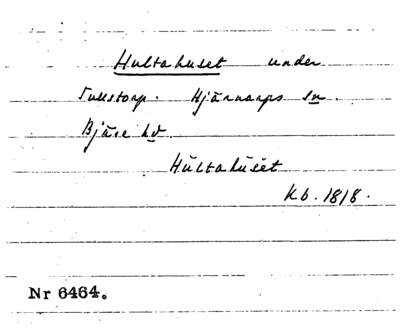 Hultahuset under
Tullstorp. Hjärnarps sn.
Bjäre hd
Hultahuset
Kb. 1818.
Nr 6464.